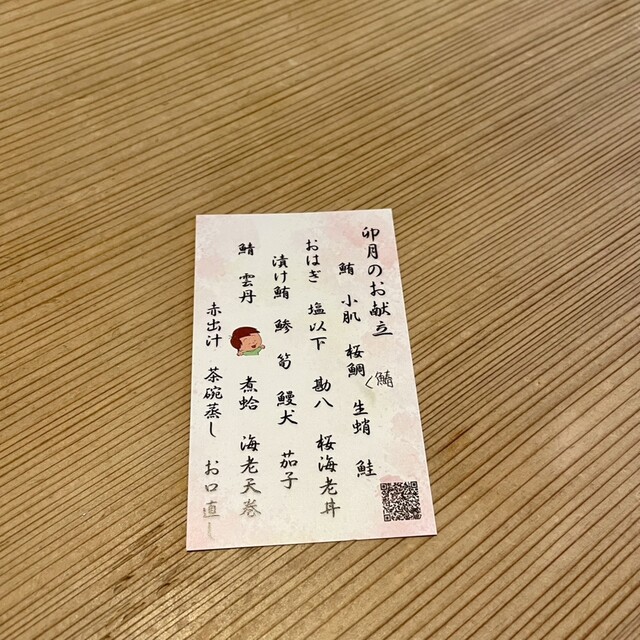 卯月のお献立
鮪 小肌 桜鯛 生蛸 鮭
く鮪
おはぎ 塩以下 勘八 桜海老丼
漬け鮪 鯵 筍 鰻犬 茄子
鯖 雲丹 煮蛤 海老天巻
赤出汁 茶碗蒸し お口直し